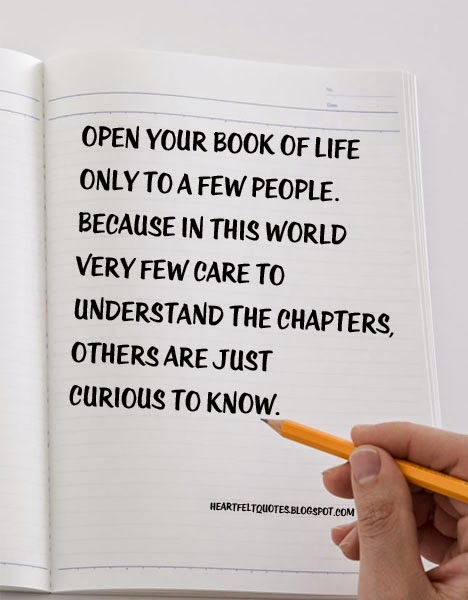 No.
Date
OPEN YOUR BOOK OF LIFE
ONLY TO A FEW PEOPLE.
BECAUSE IN THIS WORLD
VERY FEW CARE TO
UNDERSTAND THE CHAPTERS,
OTHERS ARE JUST
CURIOUS TO KNOW.
HEARTFELTQUOTES.BLOGSPOT.COM